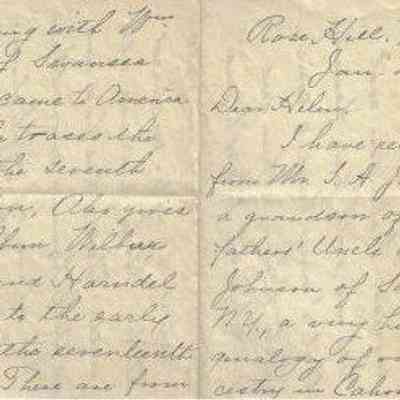 ng with Wm
of Swansea
came to America
traces the
the seventh
on, Also gives
Wilbur
and Harndel
to the early
the seventeenth
There are from
Rose Hill,
Jan.
Dear Helen,
I have re
from Mr. I. A. J
a grandson of
fathers' Uncle
Johnson of S
N.Y., a very
genealogy of
cestry in